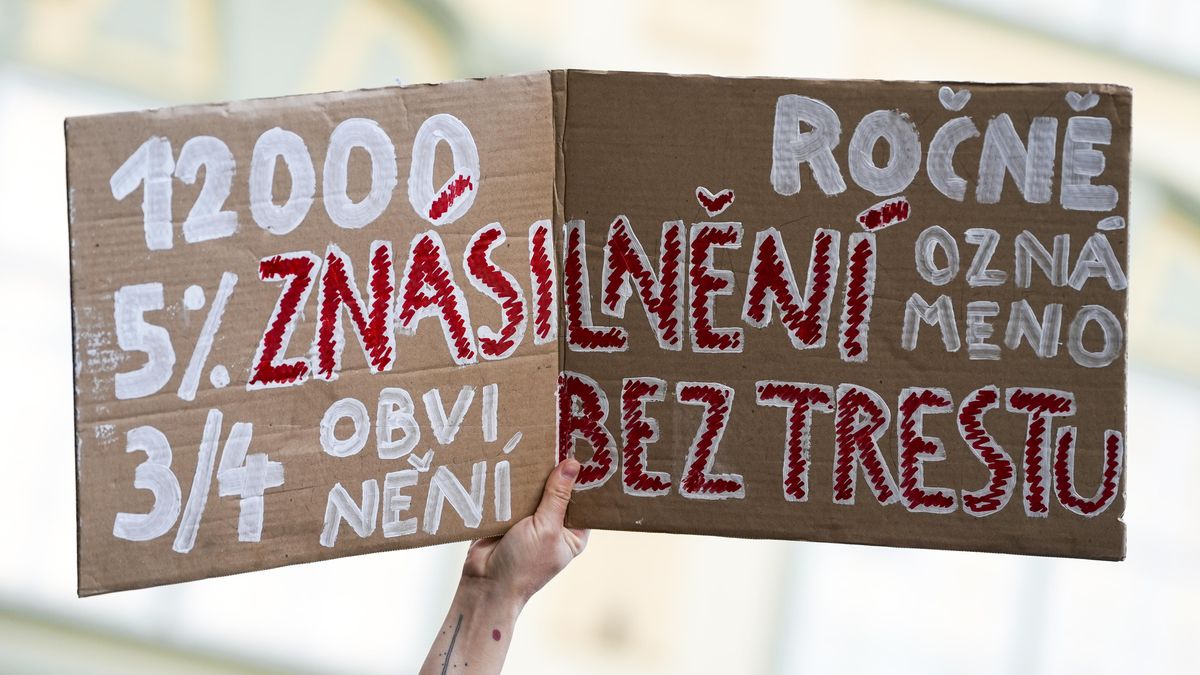 12000 ROČNĚ
5% ZNÁSILNĚNÍ OZNÁ
MENO
3/4 OBVI
NĚNÍ BEZ TRESTU